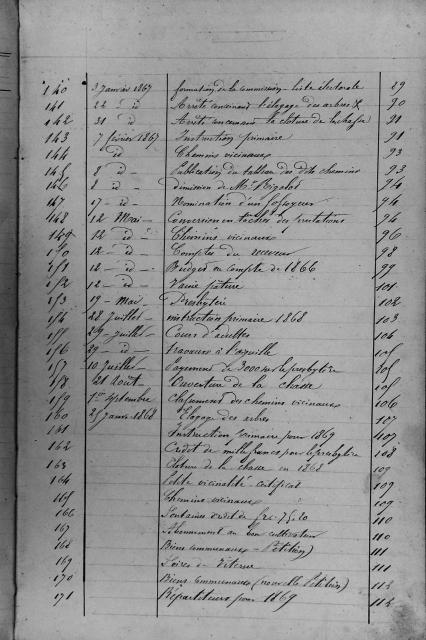 140 3 Janvier 1867 formation de la commission liste électorale 89
141 22 id Arrêté concernant l'élagage des arbres & 90
142 31 id Arrêté concernant la cloture de la chasse 91
143 7 février 1867 Instruction primaire 91
144 id Chemins vicinaux 93
145 8 id Publication du tableau des dits chemins 93
146 8 id démission de Mr Rigolot 94
147 17 id Nomination d'un fossoyeur 94
148 12 Mai Conversion en tâches des prestations 94
149 12 id Chemins vicinaux 96
150 12 id Comptes du receveur 98
151 12 id Budget en compte de 1866 99
152 12 id Vaine pâture 101
153 19 Mai Presbytère 102
154 28 Juillet instruction primaire 1868 103
155 29 Juillet Cours d'adultes 104
156 29 id travaux à l'aiguille 105
157 10 Juillet payement de 3000 sur le presbytère 105
158 21 Août Ouverture de la chasse 105
159 1er Septembre Classement des chemins vicinaux 106
160 25 Janvr 1868 Elagage des arbres 107
161 Instruction primaire pour 1869 107
162 Crédit de mille francs pour le presbytère 108
163 Cloture de la chasse en 1868 109
164 petite vicinalité certificat 109
165 Chemins vicinaux 109
166 Fontaines crédit de frs 75.20 110
167 Abonnement au bon cultivateur 110
168 Biens communaux - Pétition) 111
169 Foires de 111
170 Biens communaux (nouvelle Pétition) 112
171 Répartiteurs pour 1869 112